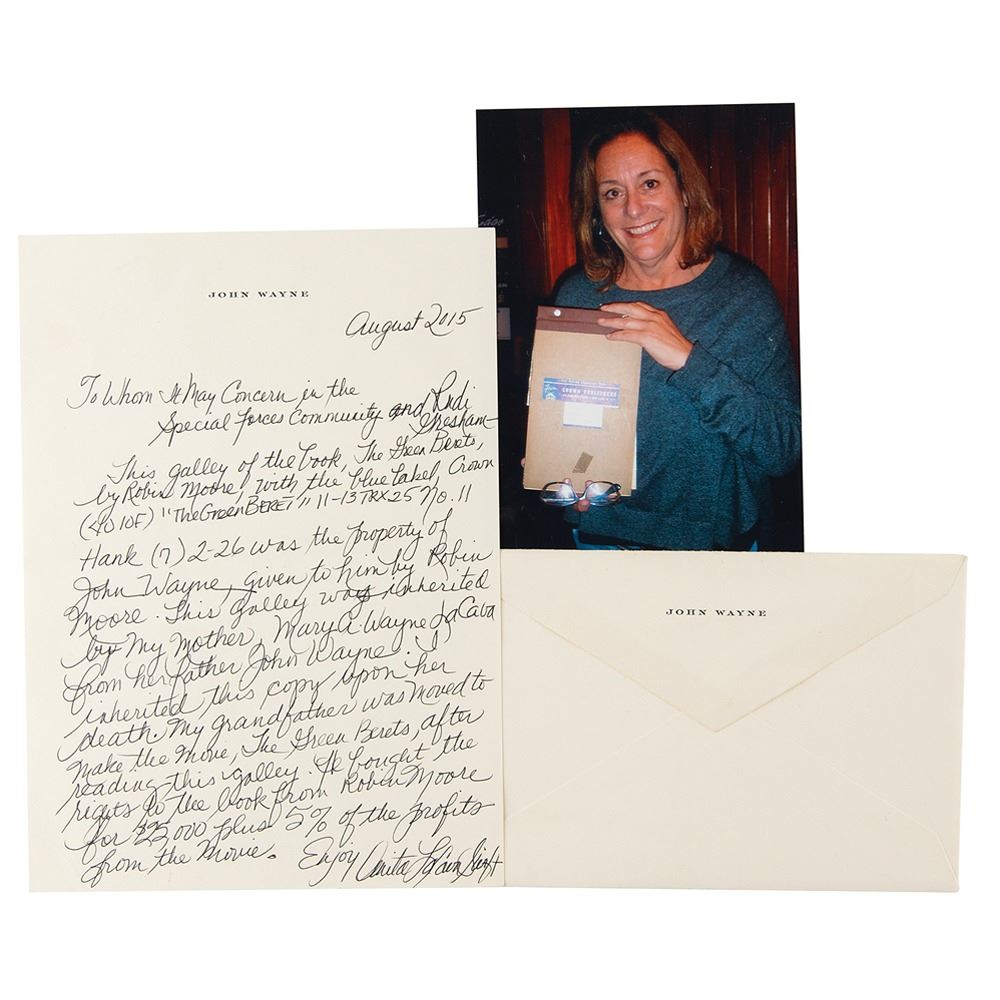 JOHN WAYNE
August 2015
To Whom It May Concern in the
Special Forces Community and Rudi
Gresham-
This galley of the book, The Green Berets,
by Robin Moore, with the blue label, Crown
(40 10F) "The Green BERET" 11-13 TRX 25 No. 11
Hank (7) 2-26 was the property of
John Wayne, given to him by Robin
Moore. This galley was inherited
by My Mother, Mary A. Wayne LaCava
from her father John Wayne. I
inherited this copy upon her
death. My grandfather was moved to
make the Movie, The Green Berets, after
reading this galley. He bought the
rights to the book from Robin Moore
for $25,000 plus 5% of the profits
from the Movie.
Enjoy Anita Swift
CROWN PUBLISHERS
JOHN WAYNE